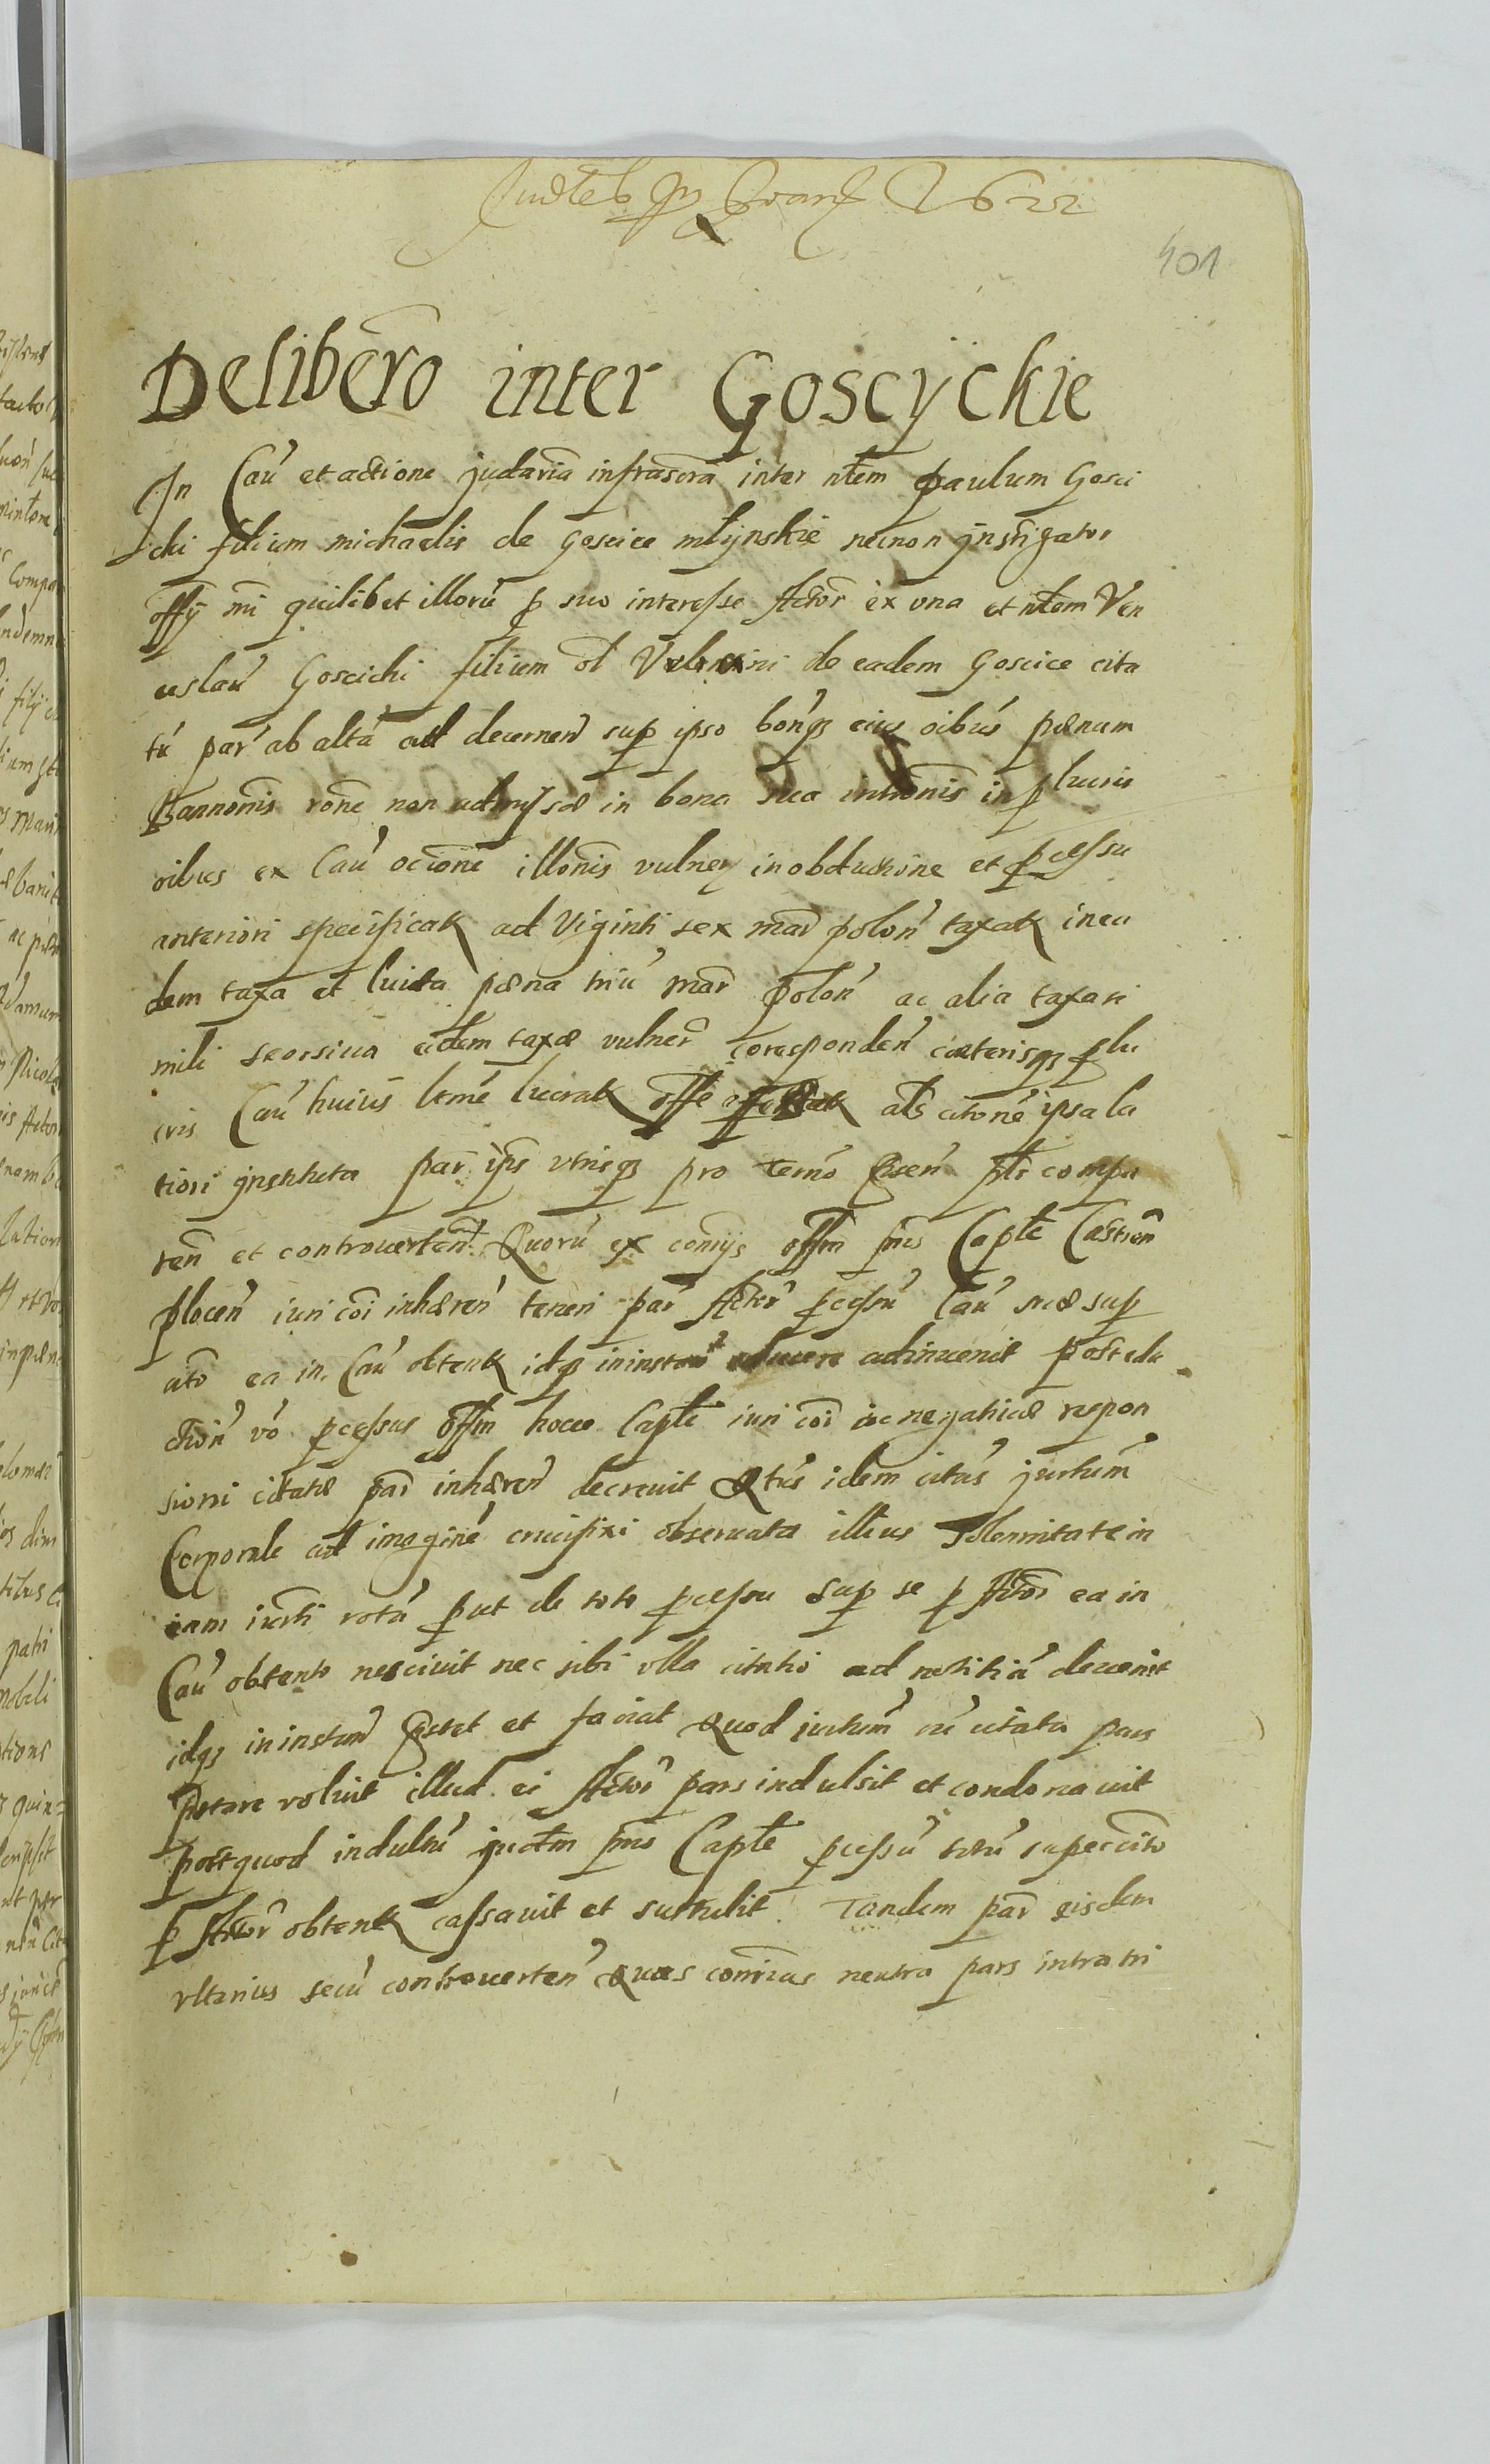 1622
401
Deliberõ inter Goscÿckie
In Cau̓ et actione judaria infrascra inter nlem paulum Gosci
cki filium michaelis de Goscice mlÿnskie necnon jnstigator
offÿ sui quilibet illorũ p suo interesse Actor ex vna et nlem Ven
ceslau̓ Goscicki filium ol de eadem Goscice cita
tu̓ par ab alta ad decernen̄ sup ipso bonisqȝ eius oibus pænam
Bannonis rone non admissæ in bona sua intronis in plucris
oribus ex Cau̓ illonis vulner in obductione et pcessu
anteriori specificat ad Viginti sex mar polon̓ taxat in ea
dem taxa et luita pæna triu̓ mar Polon̓ ac alia taxa si
mili seorsiua eidem taxæ vulner coresponden̓ cæterisqȝ plu
cris Cau̓ huius lucrat offe als citone ipsa la
tiori jnsertheta par ips vtrisqȝ pro termo pnti compa
ren̄ et controuerten̄. Quoru̓ ex contrÿs offm pns Capte Castren̄
plocen̓ iuri coi inhæren̓ teneri par Actor pcessu̓ Cau̓ suæ sup
cito ea in Cau̓ obtent idqȝ in instan̓ aducere adinuenit post edu
ction̓ vo pcessus offm hocce Capte iuri coi ac negatiuæ respon
sioni citatæ par inhæren̄ decreuit Qtus idem citus jurtum̓
Corporale ad imagine̓ crucifixi obseruata illius Solennitate in
eam iurti rota̓ put de toto pcessu sup se p Actor ea in
Cau̓ obtento nesciuit nec sibi vlla citatio ad notitia̓ deuenit
idqȝ in instan̄ pstet et faciat Quod jurtum̓ cu̓ citata pars
pstare voluit illud ei Actor pars indulsit et condonauit
postquod indultu̓ jurtm pns Capte pcessu̓ totu̓ super cito
p Actor obtent cassauit et sustulit. Tandem par eisdem
vlterius secu̓ controuerten̓ Quas contrias neutra pars intra tri